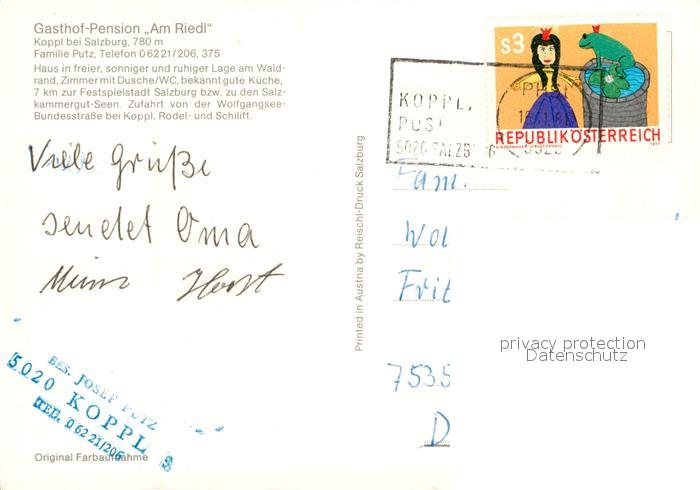 Gasthof-Pension „Am Riedl“
Koppl bei Salzburg, 780 m
Familie Putz, Telefon 0 62 21 / 206, 375
Haus in freier, sonniger und ruhiger Lage am Wald-
rand, Zimmer mit Dusche/WC, bekannt gute Küche,
7 km zur Festspielstadt Salzburg bzw. zu den Salz-
kammergut-Seen. Zufahrt von der Wolfgangsee-
Bundesstraße bei Koppl, Rodel- und Schilift.
Viele Grüße
sendet Oma
Horst
BES. JOSEF PUTZ
5020 KOPPL
TEL. 0 62 21/206
Original Farbaufnahme
Printed in Austria by Reischl-Druck Salzburg
s3
REPUBLIK ÖSTERREICH
KOPPL,
POST
5020 SALZB
5020
Fam.
Wol
Frit
7535
D
privacy protection
Datenschutz